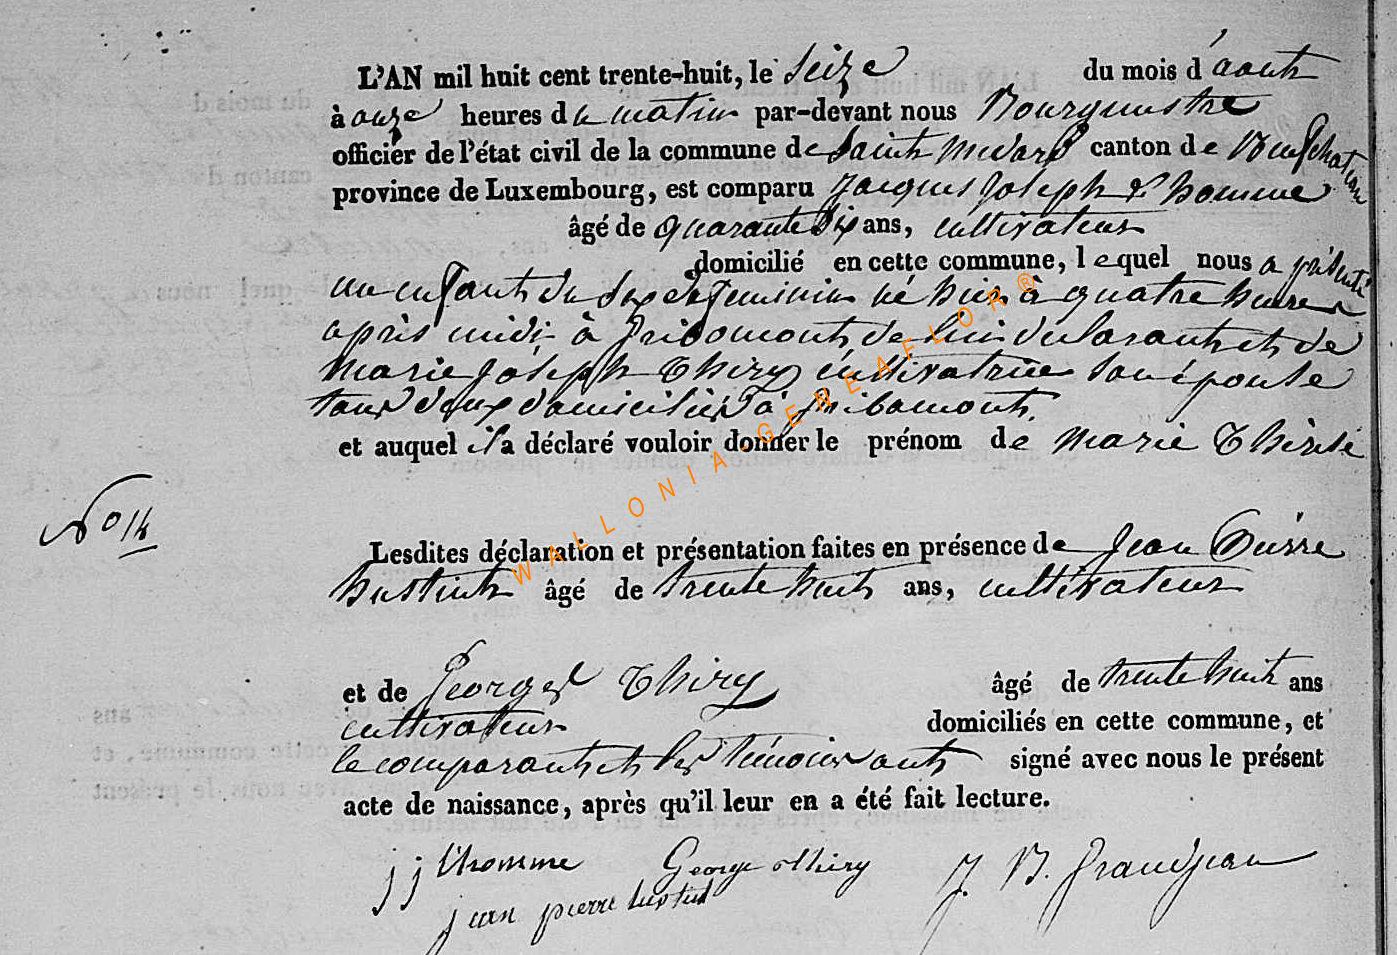 L'AN mil huit cent trente-huit, le seize du mois d'août
à onze heures du matin par-devant nous Bourgmestre
officier de l'état civil de la commune de Saint Medard canton de Neufchateau
province de Luxembourg, est comparu Jacques Joseph L'homme
âgé de quarante six ans, cultivateur
domicilié en cette commune, lequel nous a présenté
un enfant du sexe feminin né hier à quatre heures
après midi à fribomont de lui declarant et de
Marie Joseph Thiry cultivatrice son épouse
tous deux domiciliés à fribomont.
et auquel il a déclaré vouloir donner le prénom de Marie Thérèse
No 14
Lesdites déclaration et présentation faites en présence de Jean Pierre
hustin âgé de trente huit ans, cultivateur
et de Georges Thiry âgé de trente huit ans
cultivateur domiciliés en cette commune, et
le comparant et les témoins ont signé avec nous le présent
acte de naissance, après qu'il leur en a été fait lecture.
j j l'homme George thiry J. B. Grandjean
jean pierre hustin
WALLONIA-GENEAFLOR®